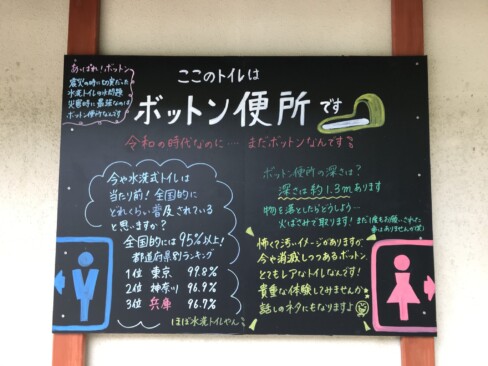 あっぱれ!ボットン
震災の時に切実だった
水洗トイレの水問題
災害時に最強なのは
ボットン便所なんです
ここのトイレは
ボットン便所です
令和の時代なのに‥‥まだボットンなんです
今や水洗式トイレは
当たり前!全国的に
どれくらい普及されている
と思いますか?
全国的には95%以上!
都道府県別ランキング
1位 東京 99.8%
2位 神奈川 96.9%
3位 兵庫 96.7%
ほぼ水洗トイレやん
ボットン便所の深さは?
深さは約1.3mあります
物を落としたらどうしよう…
火ばさみで取ります!まだ1度もお願いされた
事はありませんが(笑)
怖くて汚いイメージがありますが
今や消滅しつつあるボットン
とてもレアなトイレなんです!
貴重な体験してみませんか
話しのネタにもなりますよ